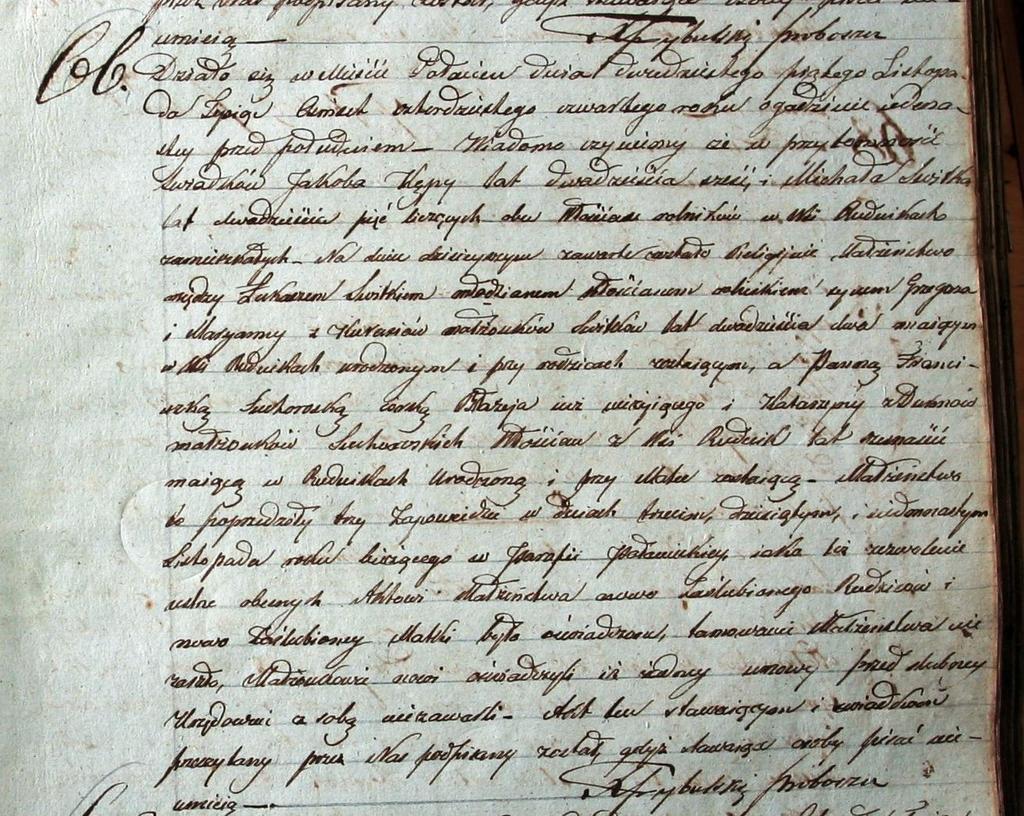 przez Nas podpisany został, gdyż
umieią — XTrybulski Proboszcz
66. Działo się w Mieście Połańcu dnia dwudziestego piątego Listopa-
da Tysiąc Ośmset czterdziestego czwartego roku o godzinie iedena-
stey przed południem — Wiadomo czyniemy że w przytomności
Swiadków Jakoba Kępy lat dwadzieścia sześć, i Michała Switka
lat dwadzieścia pięć liczących obu Włościan rolników w Wsi Rudnikach
zamieszkałych — Na dniu dzisieyszym zawarte zostało Religijnie Małżeństwo
między Łukaszem Switkiem młodzianem Włościanem rolnikiem synem Grzegorza
i Maryanny z Kurasiów małżonków Switków lat dwadzieścia dwa maiącym
w Wsi Rudnikach urodzonym i przy rodzicach zostaiącym, a Panną Franci-
szką córką Błażeja iuż nieżyiącego i Katarzyny z
małżonków Włościan z Wsi Rudnik lat ośmnaście
maiącą w Rudnikach Urodzoną i przy Matce zostaiącą — Małżeństwo
to poprzedziły trzy Zapowiedzie w dniach trzecim, dziesiątym, i siedmnastym
Listopada roku bieżącego w Parafii Połanieckiey, iako też zezwolenie
ustne obecnych Aktowi Małżeństwa nowo Zaślubionego Rodziców i
nowo Zaślubioney Matki było oświadczone, tamowanie Małżeństwa nie
zaszło, Małżonkowie nowi oświadczyli iż żadney umowy przed slubney
Urzędownie z sobą niezawarli — Akt ten stawaiącym i swiadkom
przeczytany przez Nas podpisany został, gdyż stawaiące osoby pisać nie-
umieią —. XTrybulski Proboszcz